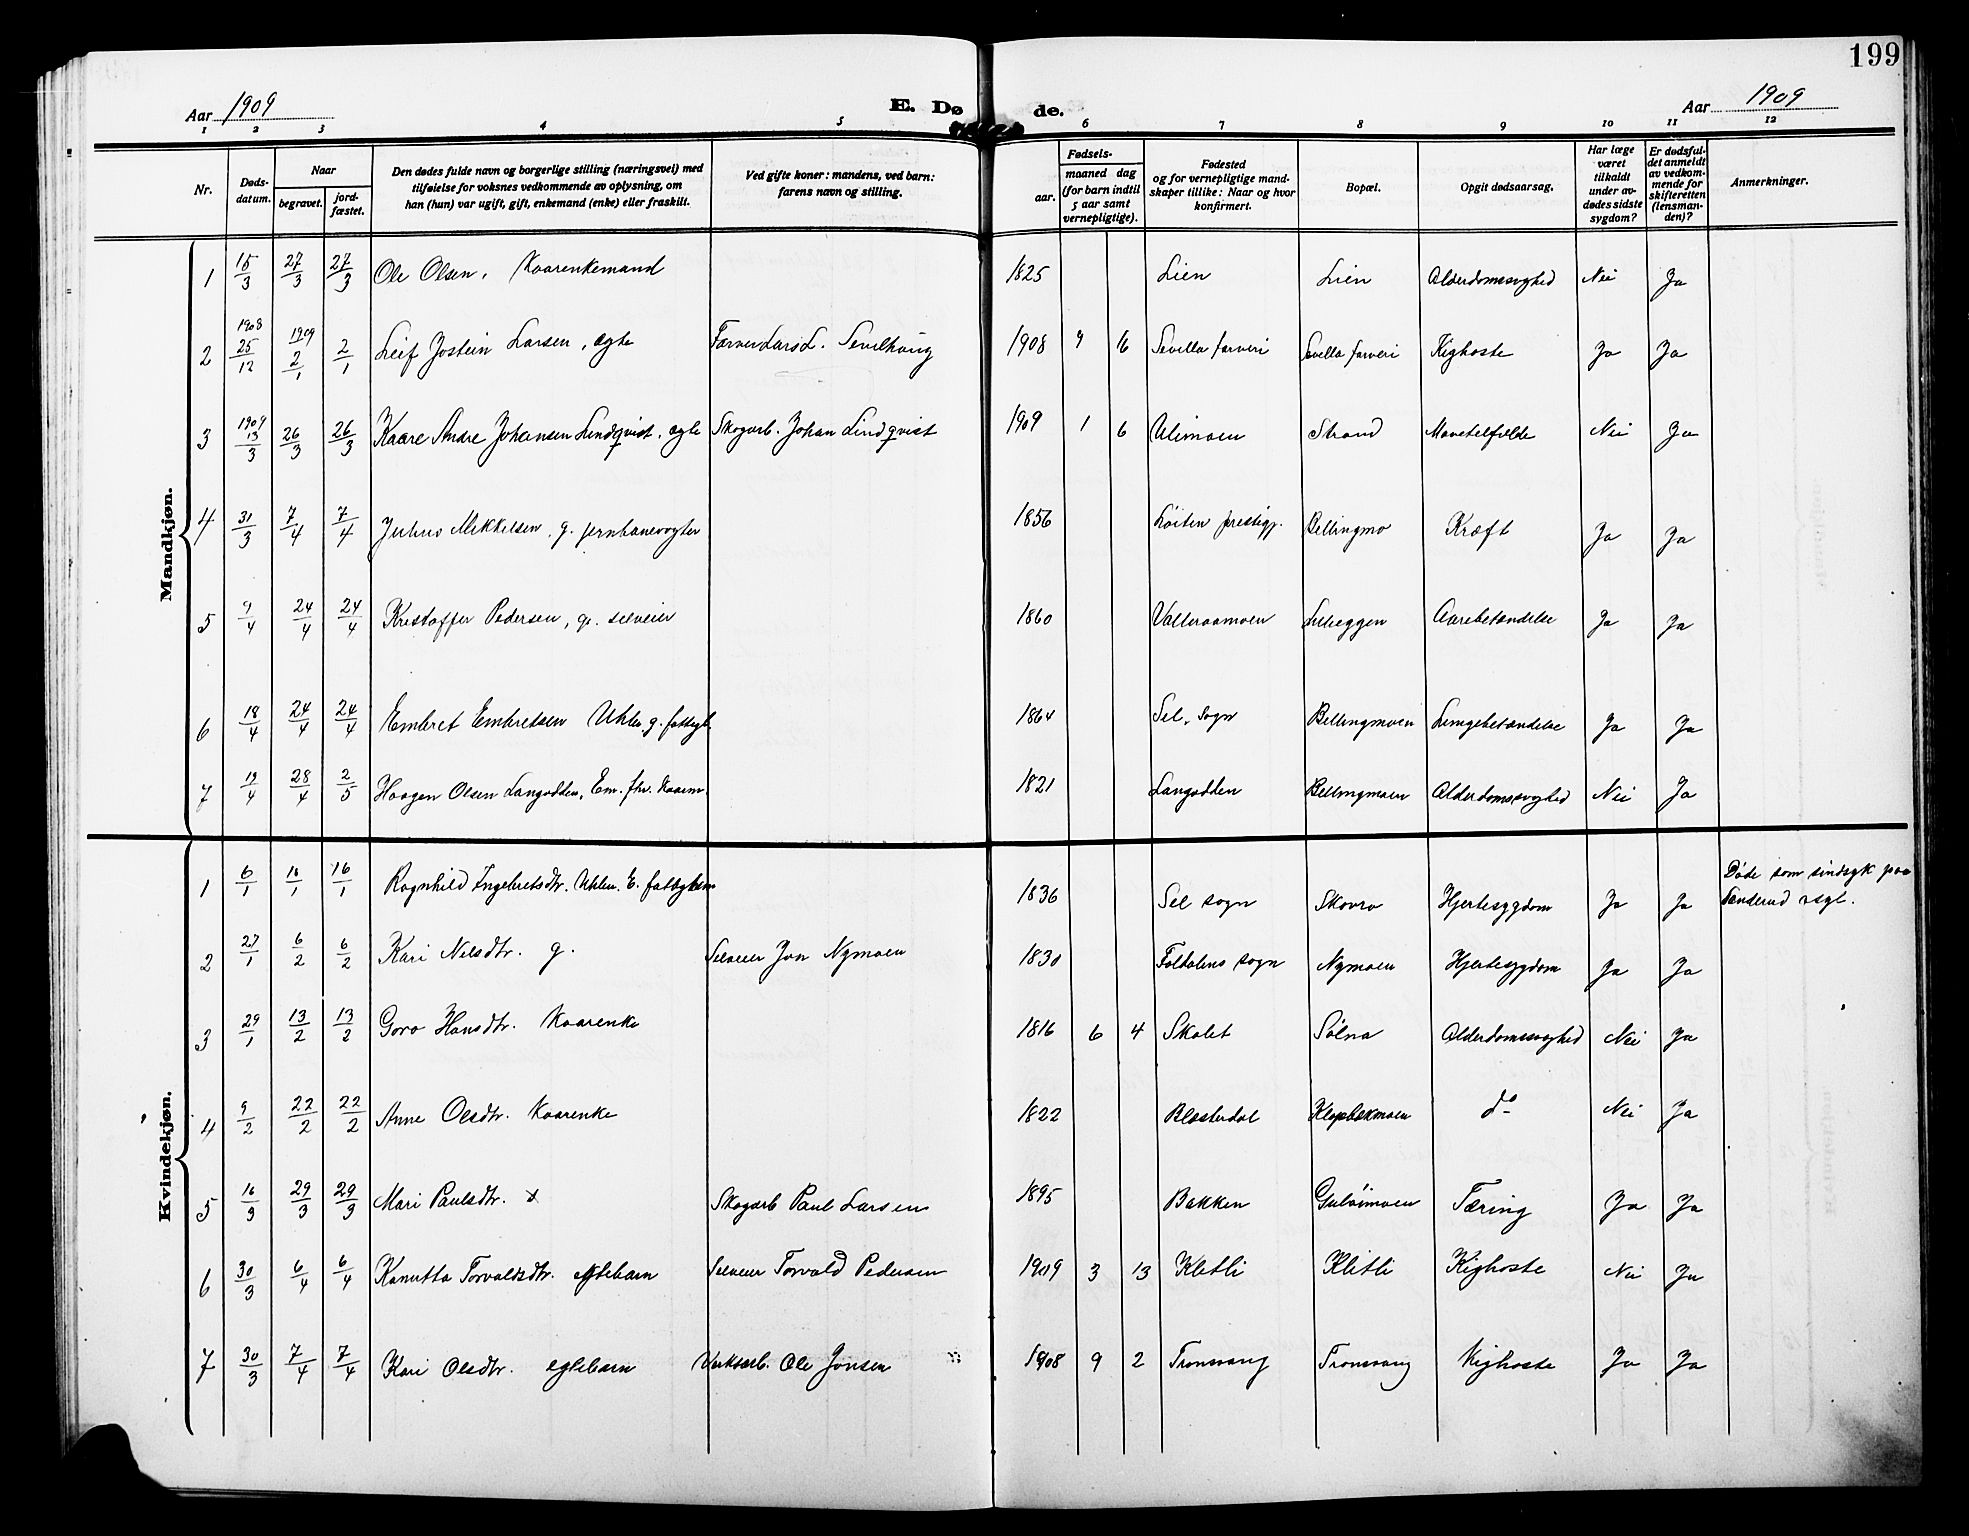 199
Aar 1909
E. Dø de.
Aar 1909
1 2 3 4 5 6 7 8 9 10 11 12
Nr.
Døds-
datum.
Naar
begravet.
jord-
fæstet.
Den dødes fulde navn og borgerlige stilling (næringsvei) med
tilføielse for voksnes vedkommende av oplysning, om
han (hun) var ugift, gift, enkemand (enke) eller fraskilt.
Ved gifte koner: mandens, ved barn:
farens navn og stilling.
Fødsels-
aar.
maaned dag
(for barn indtil
5 aar samt
vernepligtige).
Fødested
og for vernepligtige mand-
skaper tillike: Naar og hvor
konfirmert.
Bopæl.
Opgit dødsaarsag.
Har læge
været
tilkaldt
under av-
dødes sidste
sygdom?
Er dødsfal-
det anmeldt
av vedkom-
mende for
skifteretten
(lensman-
den)?
Anmerkninger.
Mandkjøn.
1 15/3 27/3 27/3 Ole Olsen, Kaarenkemand 1825 Lien Lien Alderdomssvaghed Nei Ja
2 1908 25/12 1909 2/1 2/1 Leif Jostein Larsen, ægte Farver Lars L. Sevilhaug 1908 9 16 Sevilla farveri Sevilla farveri Kighoste Ja Ja
3 1909 13/3 26/3 26/3 Kaare Andre Johansen Lindqvist, ægte Skogarb. Johan Lindqvist 1909 1 6 Ulimoen Strand Mavetilfælde Nei Ja
4 31/3 7/4 7/4 Julius Mikkelsen, g. jernbanevogter 1856 Løiten prestegj. Bellingmo Kræft Ja Ja
5 9/4 24/4 24/4 Kristoffer Pedersen, g. selveier 1860 Valleraamoen Lilleeggen Aarebetændelse Ja Ja
6 18/4 24/4 24/4 Embret Embretsen Uhlen g. fattigl. 1864 Sel. sogn Bellingmoen Lungebetændelse Ja Ja
7 19/4 28/4 2/5 Haagen Olsen Langodden, Em. fhv. Kaarm. 1821 Langodden Bellingmoen Alderdomssvaghed Nei Ja
Kvindekjøn.
1 6/1 16/1 16/1 Ragnhild Ingebretsdtr. Uhlen. E. fattiglem 1836 Sel sogn Skovro Hjertesygdom Ja Ja Døde som sindsyk paa
Sanderud asyl.
2 27/1 6/2 6/2 Kari Nilsdtr. g. Selveier Jon Nymoen 1830 Foldalens sogn Nymoen Hjertesygdom Ja Ja
3 29/1 13/2 13/2 Goro Hansdtr. Kaarenke 1816 6 4 Skolet Sølna Alderdomssvaghed Nei Ja
4 9/2 22/2 22/2 Anne Olsdtr. Kaarenke 1822 Blæsterdal Klopbækmoen do Nei Ja
5 16/3 29/3 29/3 Mari Paulsdtr. Skogarb Paul Larsen 1895 Bakken Guløimoen Tæring Ja Ja
6 30/3 6/4 6/4 Kanutta Torvaldsdtr. ægtebarn Selveier Torvald Pedersen 1909 3 13 Kletli Kletli Kighoste Nei Ja
7 30/3 7/4 7/4 Kari Olsdtr. ægtebarn Verksarb. Ole Jonsen 1908 9 2 Tronsvang Tronsvang Kighoste Ja Ja